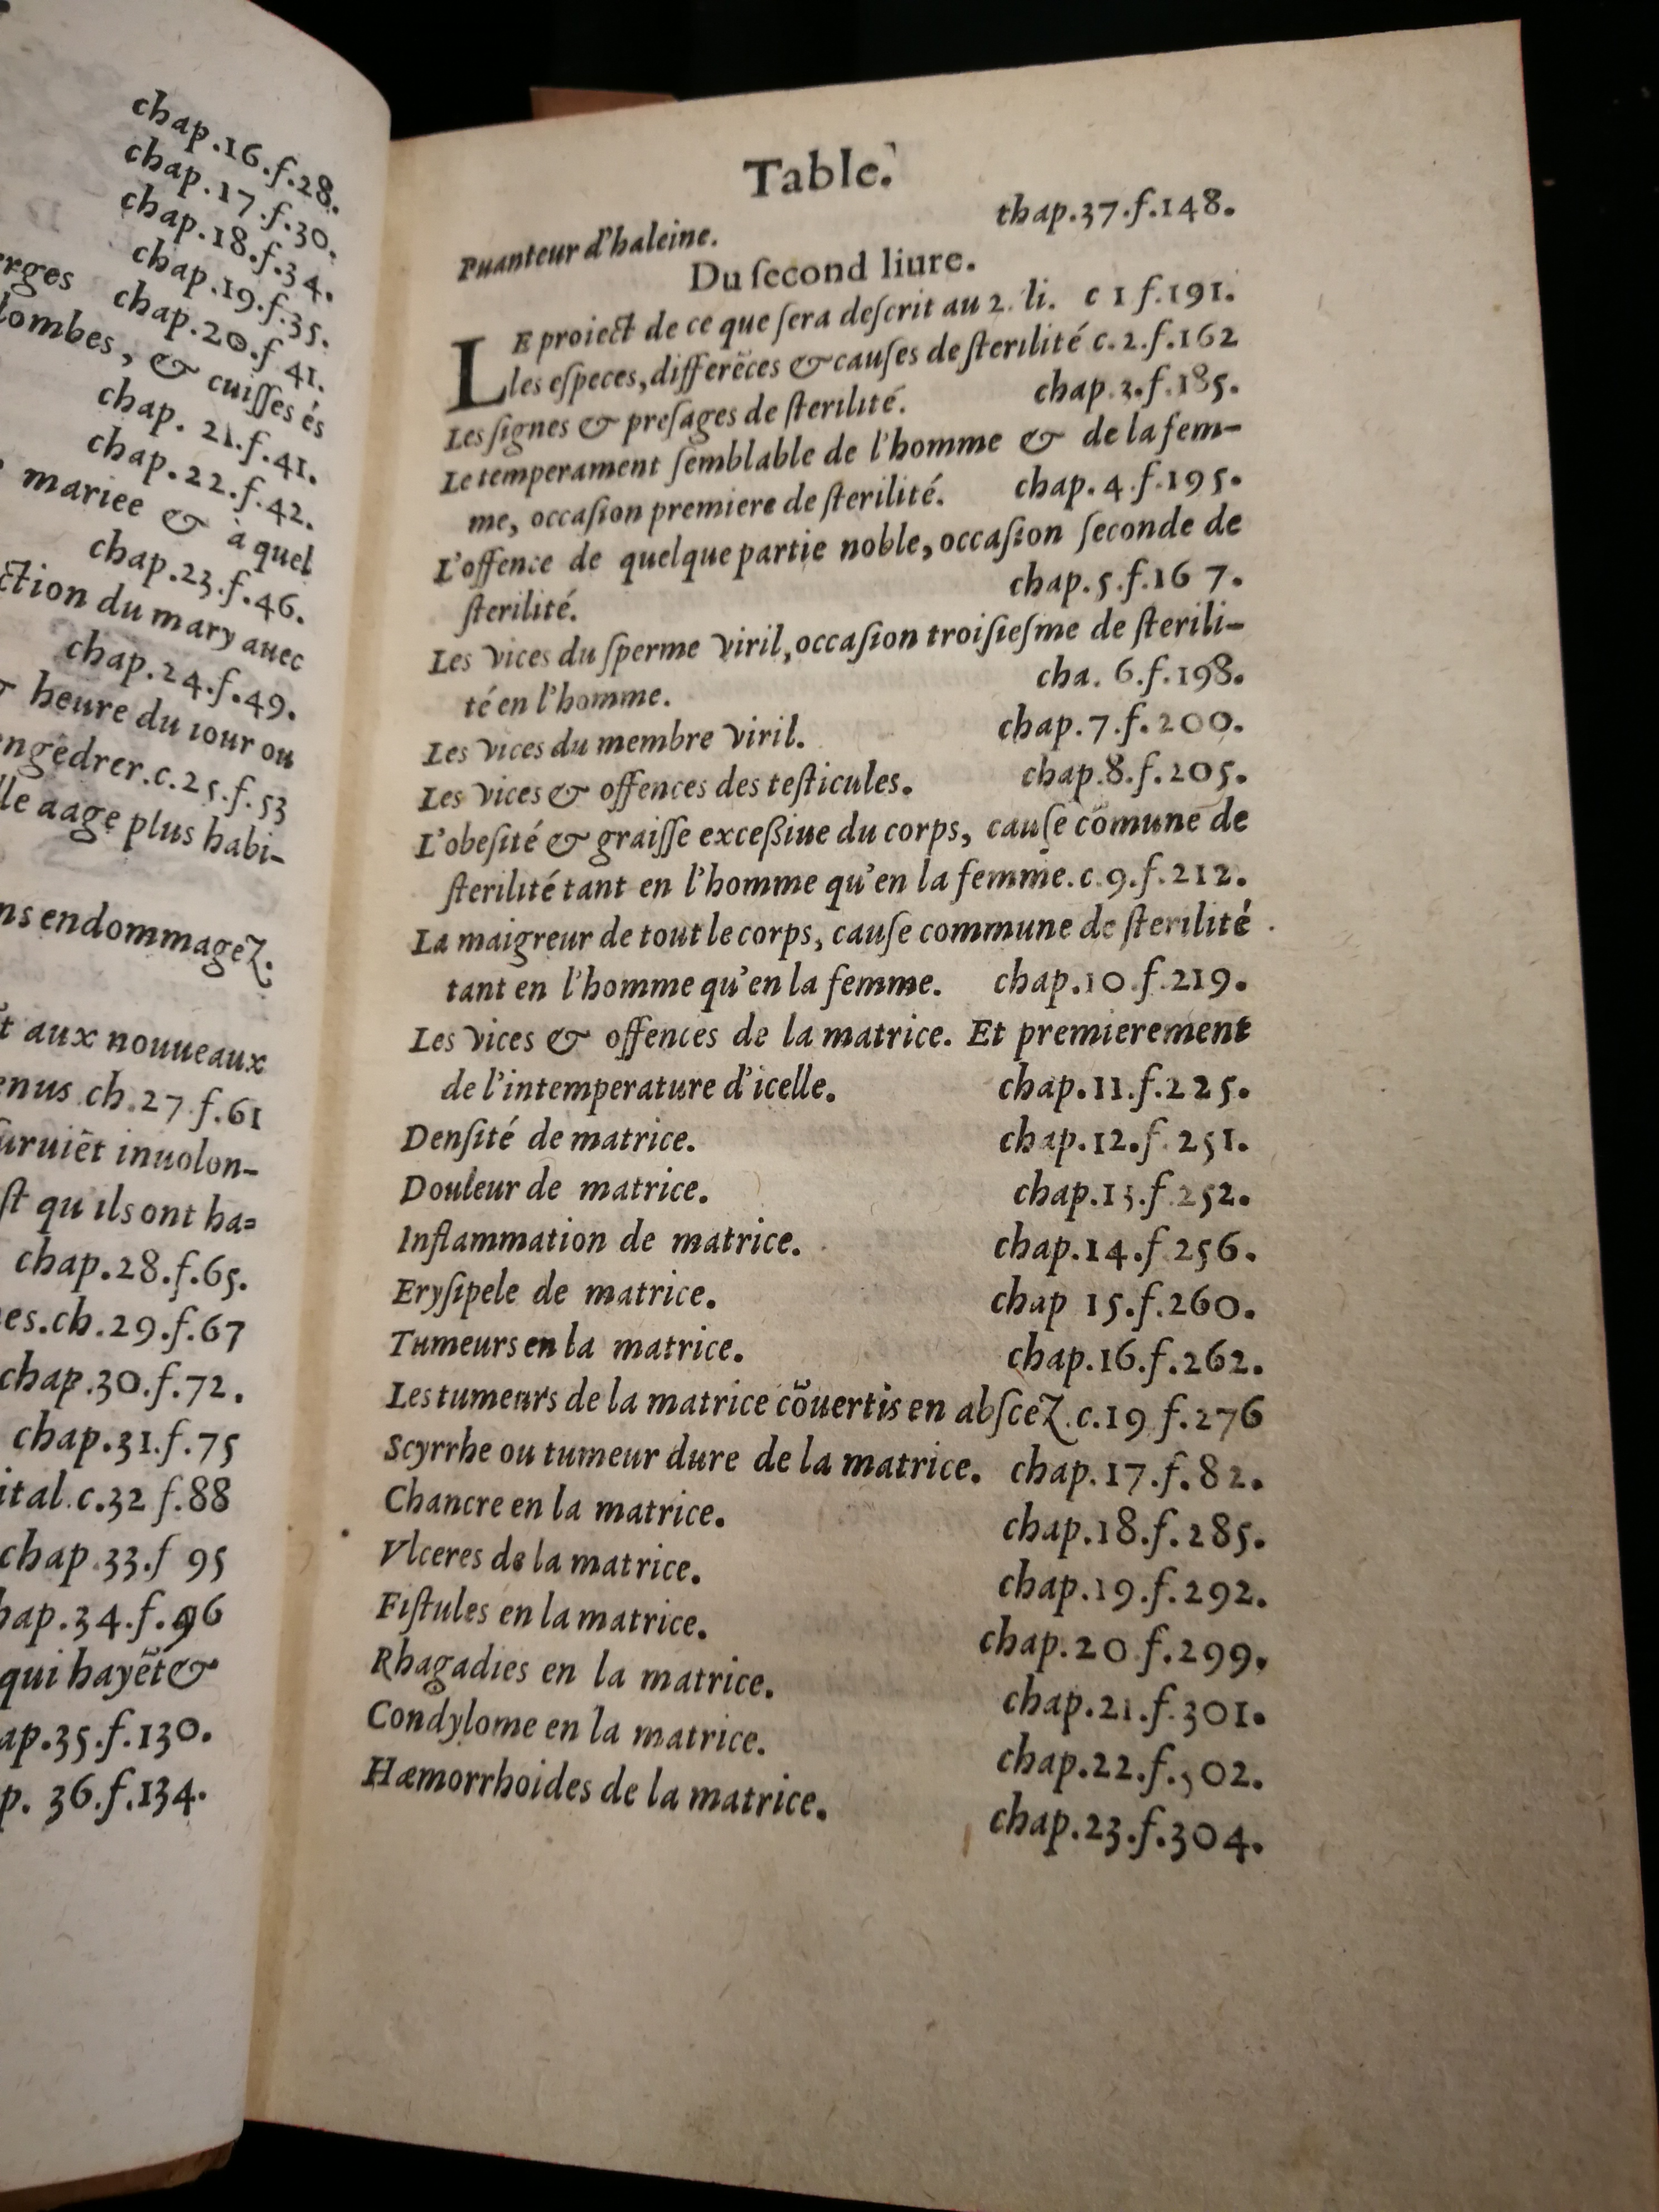 chap.16.f.28.
chap.17.f.30.
chap.18.f.34.
chap.19.f.35.
erges chap.20.f 41.
lombes, & cuiſſes és
chap. 21.f.41.
chap.22.f.42.
mariee & à quel
chap.23.f.46.
ction du mary auec
chap.24.f.49.
& heure du iour ou
engẽdrer.c.25.f.53
lle aage plus habi-
ns endommagez.
t aux nouueaux
enus ch.27.f.61
ſuruiẽt inuolon-
ſt qu ils ont ha=
chap.28.f.65.
es.ch.29.f.67
chap.30.f.72.
chap.31.f.75
ital.c.32 f.88
chap.33.f 95
hap.34.f.96
qui hayẽt &
ap.35.f.130.
p. 36.f.134.
Table.
Puanteur d'haleine. thap.37.f.148.
Du ſecond liure.
LE proiect de ce que ſera deſcrit au 2. li. c 1 f.191.
les eſpeces, differẽces & cauſes de ſterilité c.2.f.162
Les ſignes & preſages de ſterilité. chap.3.f.185.
Le temperament ſemblable de l'homme & de la fem-
me, occaſion premiere de ſterilité. chap.4.f.195.
L'offence de quelque partie noble, occaſion ſeconde de
ſterilité. chap.5.f.16 7.
Les vices du ſperme viril, occaſion troiſieſme de ſterili-
té en l'homme. cha. 6.f.198.
Les vices du membre viril. chap.7.f.200.
Les vices & offences des teſticules. chap.8.f.205.
L'obeſité & graiſſe exceßiue du corps, cauſe cõmune de
ſterilité tant en l'homme qu'en la femme.c.9.f.212.
La maigreur de tout le corps, cauſe commune de ſterilité
tant en l'homme qu'en la femme. chap.10.f.219.
Les vices & offences de la matrice. Et premierement
de l'intemperature d'icelle. chap.11.f.225.
Denſité de matrice. chap.12.f.251.
Douleur de matrice. chap.13.f.252.
Inflammation de matrice. chap.14.f.256.
Eryſipele de matrice. chap 15.f.260.
Tumeurs en la matrice. chap.16.f.262.
Les tumeurs de la matrice cõuertis en abſcez.c.19 f.276
Scyrrhe ou tumeur dure de la matrice. chap.17.f.82.
Chancre en la matrice. chap.18.f.285.
Vlceres de la matrice. chap.19.f.292.
Fiſtules en la matrice. chap.20.f.299.
Rhagadies en la matrice. chap.21.f.301.
Condylome en la matrice. chap.22.f.302.
Hæmorrhoides de la matrice. chap.23.f.304.